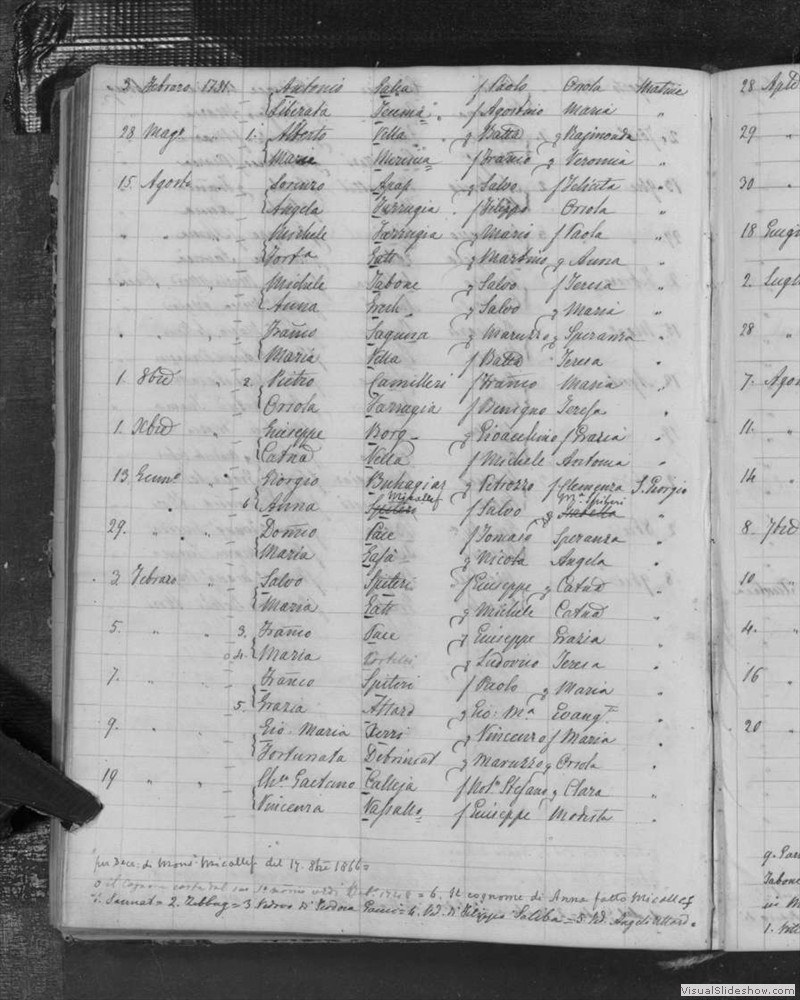 3 Febraro 1731. Antonio Salia f Paolo Oriola Matrice
Liberata f Agostino Maria "
28 Mago 1. Alberto Vella g Batta g Rajmonda "
Maria f Franco g Veronia "
15 Agosto Lorenzo Apap g Salvo f "
Angela Farrugia f Filippo Oriola "
" " " Michele Farrugia g Mario f Paola "
Gatt g Martino g Anna "
Michele Tabone g Salvo f Teresa "
Anna Grech g Salvo g Maria "
" " " Franco Saguna g Maruzzo g Speranza "
Maria Vella f Batta Teresa "
1. 8bre " 2. Pietro Camilleri f Franco Maria "
Oriola Farrugia f Benigno Teresa "
1. Xbre " Giuseppe Borg g Gioachino f Grazia "
Catna Vella f Michele Antonia "
13 " Giorgio Buhagiar g Petrozzo f Clemenza S. Giorgio
Micallef Ma Spiteri
6 Anna Spiteri f Salvo g Isabella
29. " " Domco Pace f Tomaso Speranza "
Maria g Nicola Angela "
3 Febraro " Salvo Spiteri f Giuseppe g Catna "
Maria Gatt g Michele Catna "
5. " " 3. Franco Pace g Giuseppe Grazia "
o 4. Maria Portelli g Ludovico Teresa "
7. " " Franco Spiteri f Paolo g Maria "
5. Grazia Attard g Gio: Ma Evangta "
9. " " Gio: Maria Xerri g Vincenzo f Maria "
Fortunata Debrincat g Maruzzo g Oriola "
19 " " Gaetano Calleja f Notr Stefano g Clara "
Vincenza Vassallo f Giuseppe Modesta "
per Dec. di Monsr Micallef del 17. 8bre 1866 =
= 6. Il cognome di Anna fatto Micallef
1. Sannat = 2. Zebbug = 3. Vedovo di = 4. Vd. di Filippo Saliba = 5. Vd. Angelo Attard.
28 Aple
29 "
30 "
18 Giugn
2. Lugl
28 "
7. Agos
11. "
14 "
8. 7bre
10 "
4. "
16 "
20 "
Tabone
in M
VisualSlideshow.com